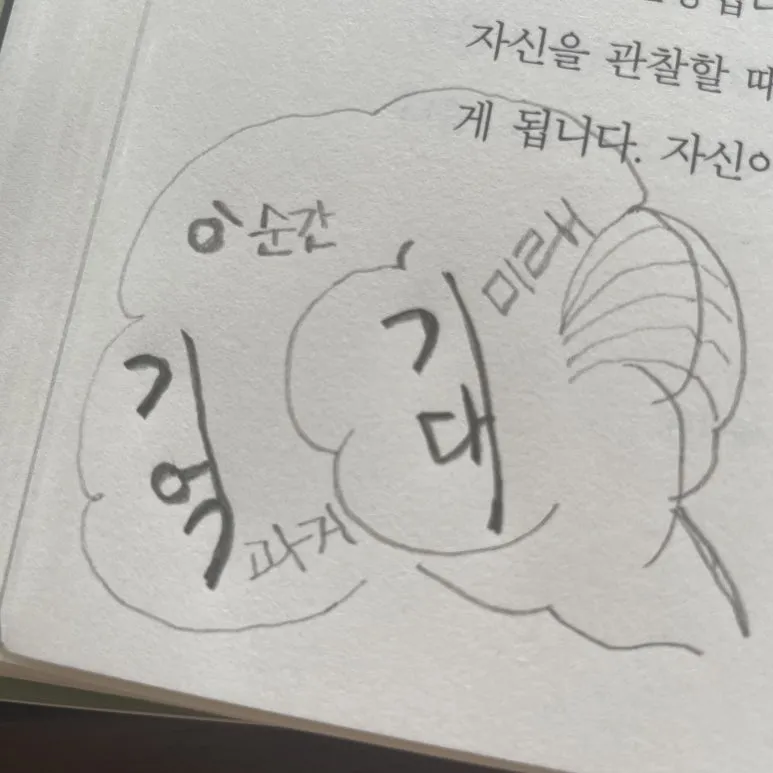 자신을 관찰할 때
게 됩니다. 자신이
이 순간
미래
기대
기억
과거